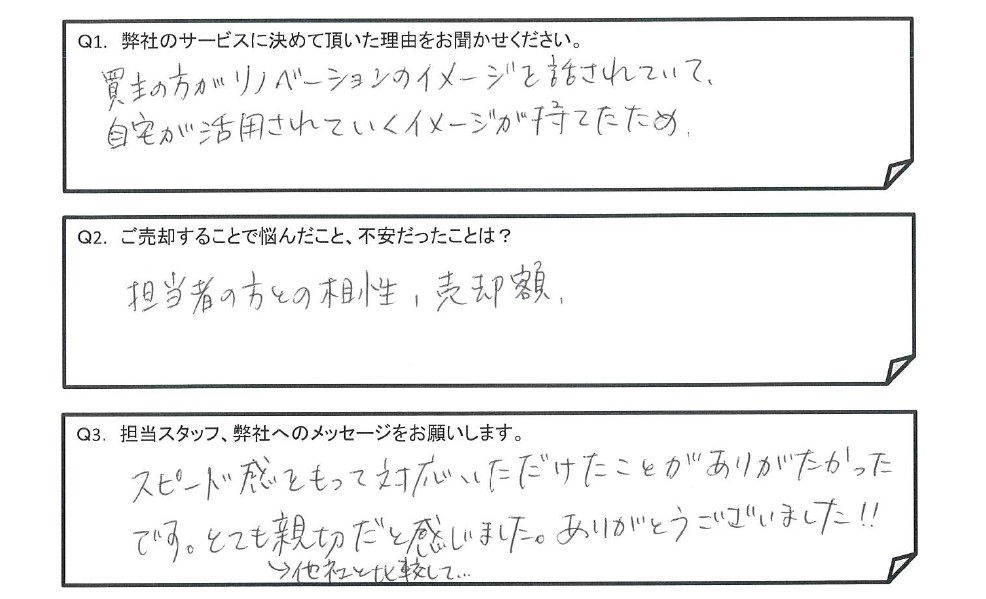 Q1. 弊社のサービスに決めて頂いた理由をお聞かせください。
買主の方がリノベーションのイメージを話されていて、
自宅が活用されていくイメージが持てたため、
Q2. ご売却することで悩んだこと、不安だったことは？
担当者の方との相性、売却額、
Q3. 担当スタッフ、弊社へのメッセージをお願いします。
スピード感をもって対応いただけたことがありがたかった
です。とても親切だと感じました。ありがとうございました!!
↳他社と比較して…